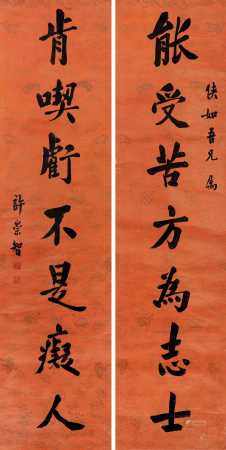 俠如吾兄屬
能受苦方為志士
肯喫虧不是癡人
許崇智